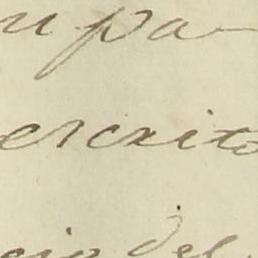 u pa
ercxito
cio del